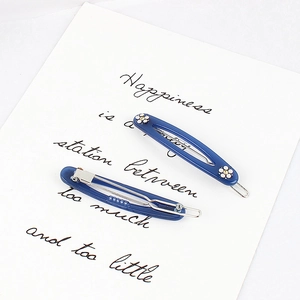 Happiness
is a
station between
too much
and too little